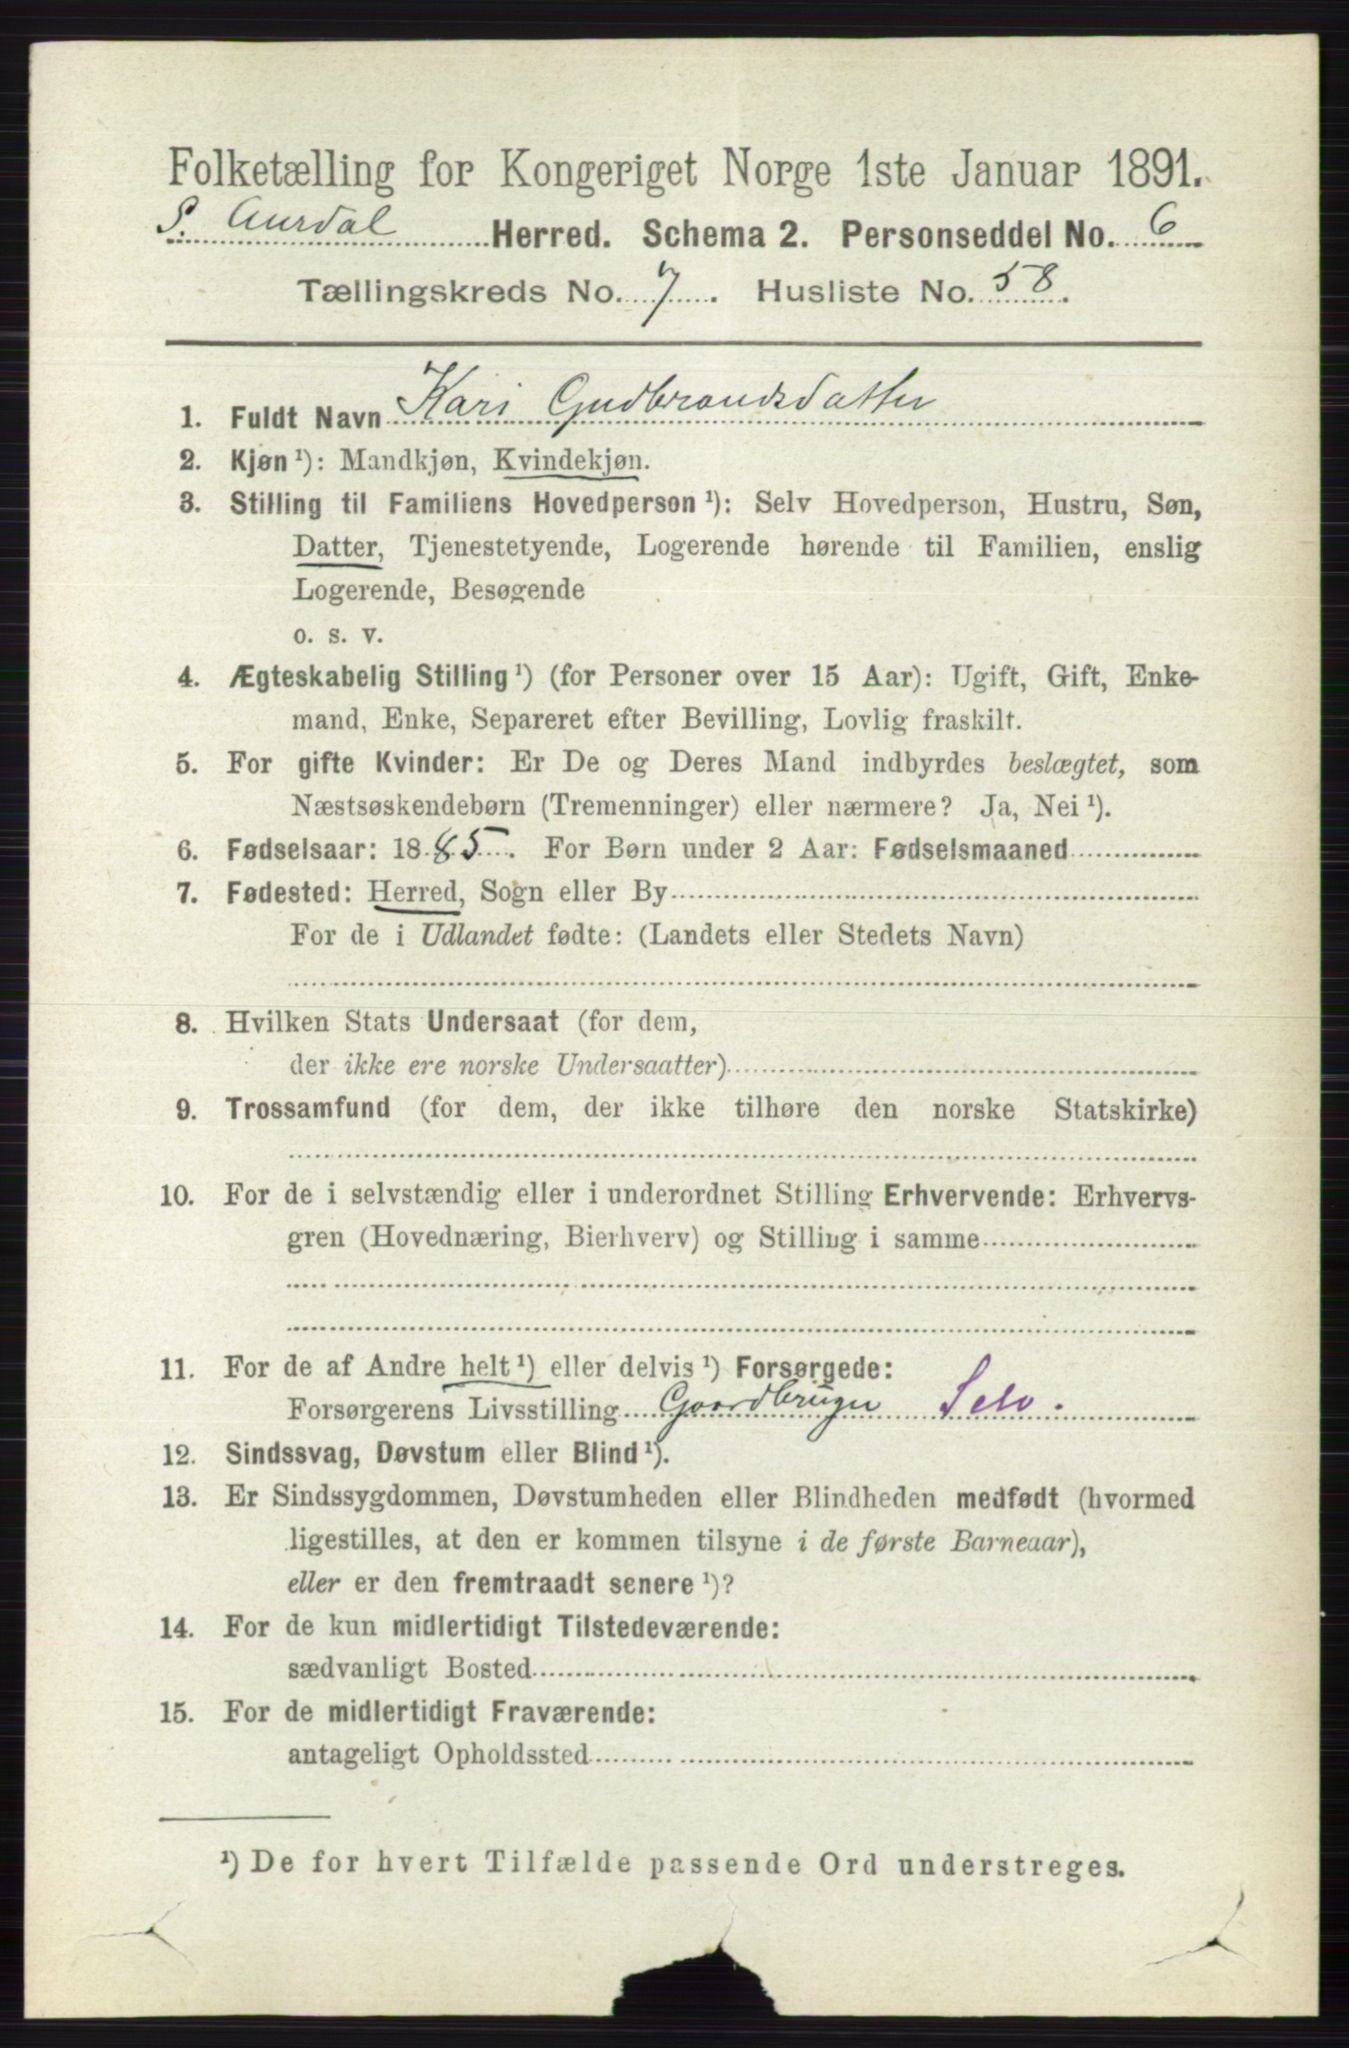 Folketælling for Kongeriget Norge 1ste Januar 1891.
S. Aurdal Herred. Schema 2. Personseddel No. 6
Tællingskreds No. 7. Husliste No. 58.
1. Fuldt Navn Kari Gudbrandsdatter
2. Kjøn ¹): Mandkjøn, Kvindekjøn.
3. Stilling til Familiens Hovedperson ¹): Selv Hovedperson, Hustru, Søn,
Datter, Tjenestetyende, Logerende hørende til Familien, enslig
Logerende, Besøgende
o. s. v.
4. Ægteskabelig Stilling ¹) (for Personer over 15 Aar): Ugift, Gift, Enke-
mand, Enke, Separeret efter Bevilling, Lovlig fraskilt.
5. For gifte Kvinder: Er De og Deres Mand indbyrdes beslægtet, som
Næstsøskendebørn (Tremenninger) eller nærmere? Ja, Nei ¹).
6. Fødselsaar: 1885. For Børn under 2 Aar: Fødselsmaaned
7. Fødested: Herred, Sogn eller By
For de i Udlandet fødte: (Landets eller Stedets Navn)
8. Hvilken Stats Undersaat (for dem,
der ikke ere norske Undersaatter)
9. Trossamfund (for dem, der ikke tilhøre den norske Statskirke)
10. For de i selvstændig eller i underordnet Stilling Erhvervende: Erhvervs-
gren (Hovednæring, Bierhverv) og Stilling i samme
11. For de af Andre helt ¹) eller delvis ¹) Forsørgede:
Forsørgerens Livsstilling Gaardbruger Selv.
12. Sindssvag, Døvstum eller Blind ¹).
13. Er Sindssygdommen, Døvstumheden eller Blindheden medfødt (hvormed
ligestilles, at den er kommen tilsyne i de første Barneaar),
eller er den fremtraadt senere ¹)?
14. For de kun midlertidigt Tilstedeværende:
sædvanligt Bosted
15. For de midlertidigt Fraværende:
antageligt Opholdssted
¹) De for hvert Tilfælde passende Ord understreges.